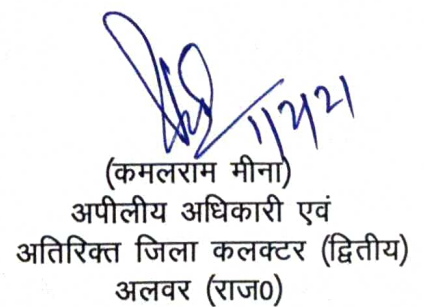 1/2/21
(कमलराम मीना)
अपीलीय अधिकारी एवं
अतिरिक्त जिला कलक्टर (द्वितीय)
अलवर (राज0)